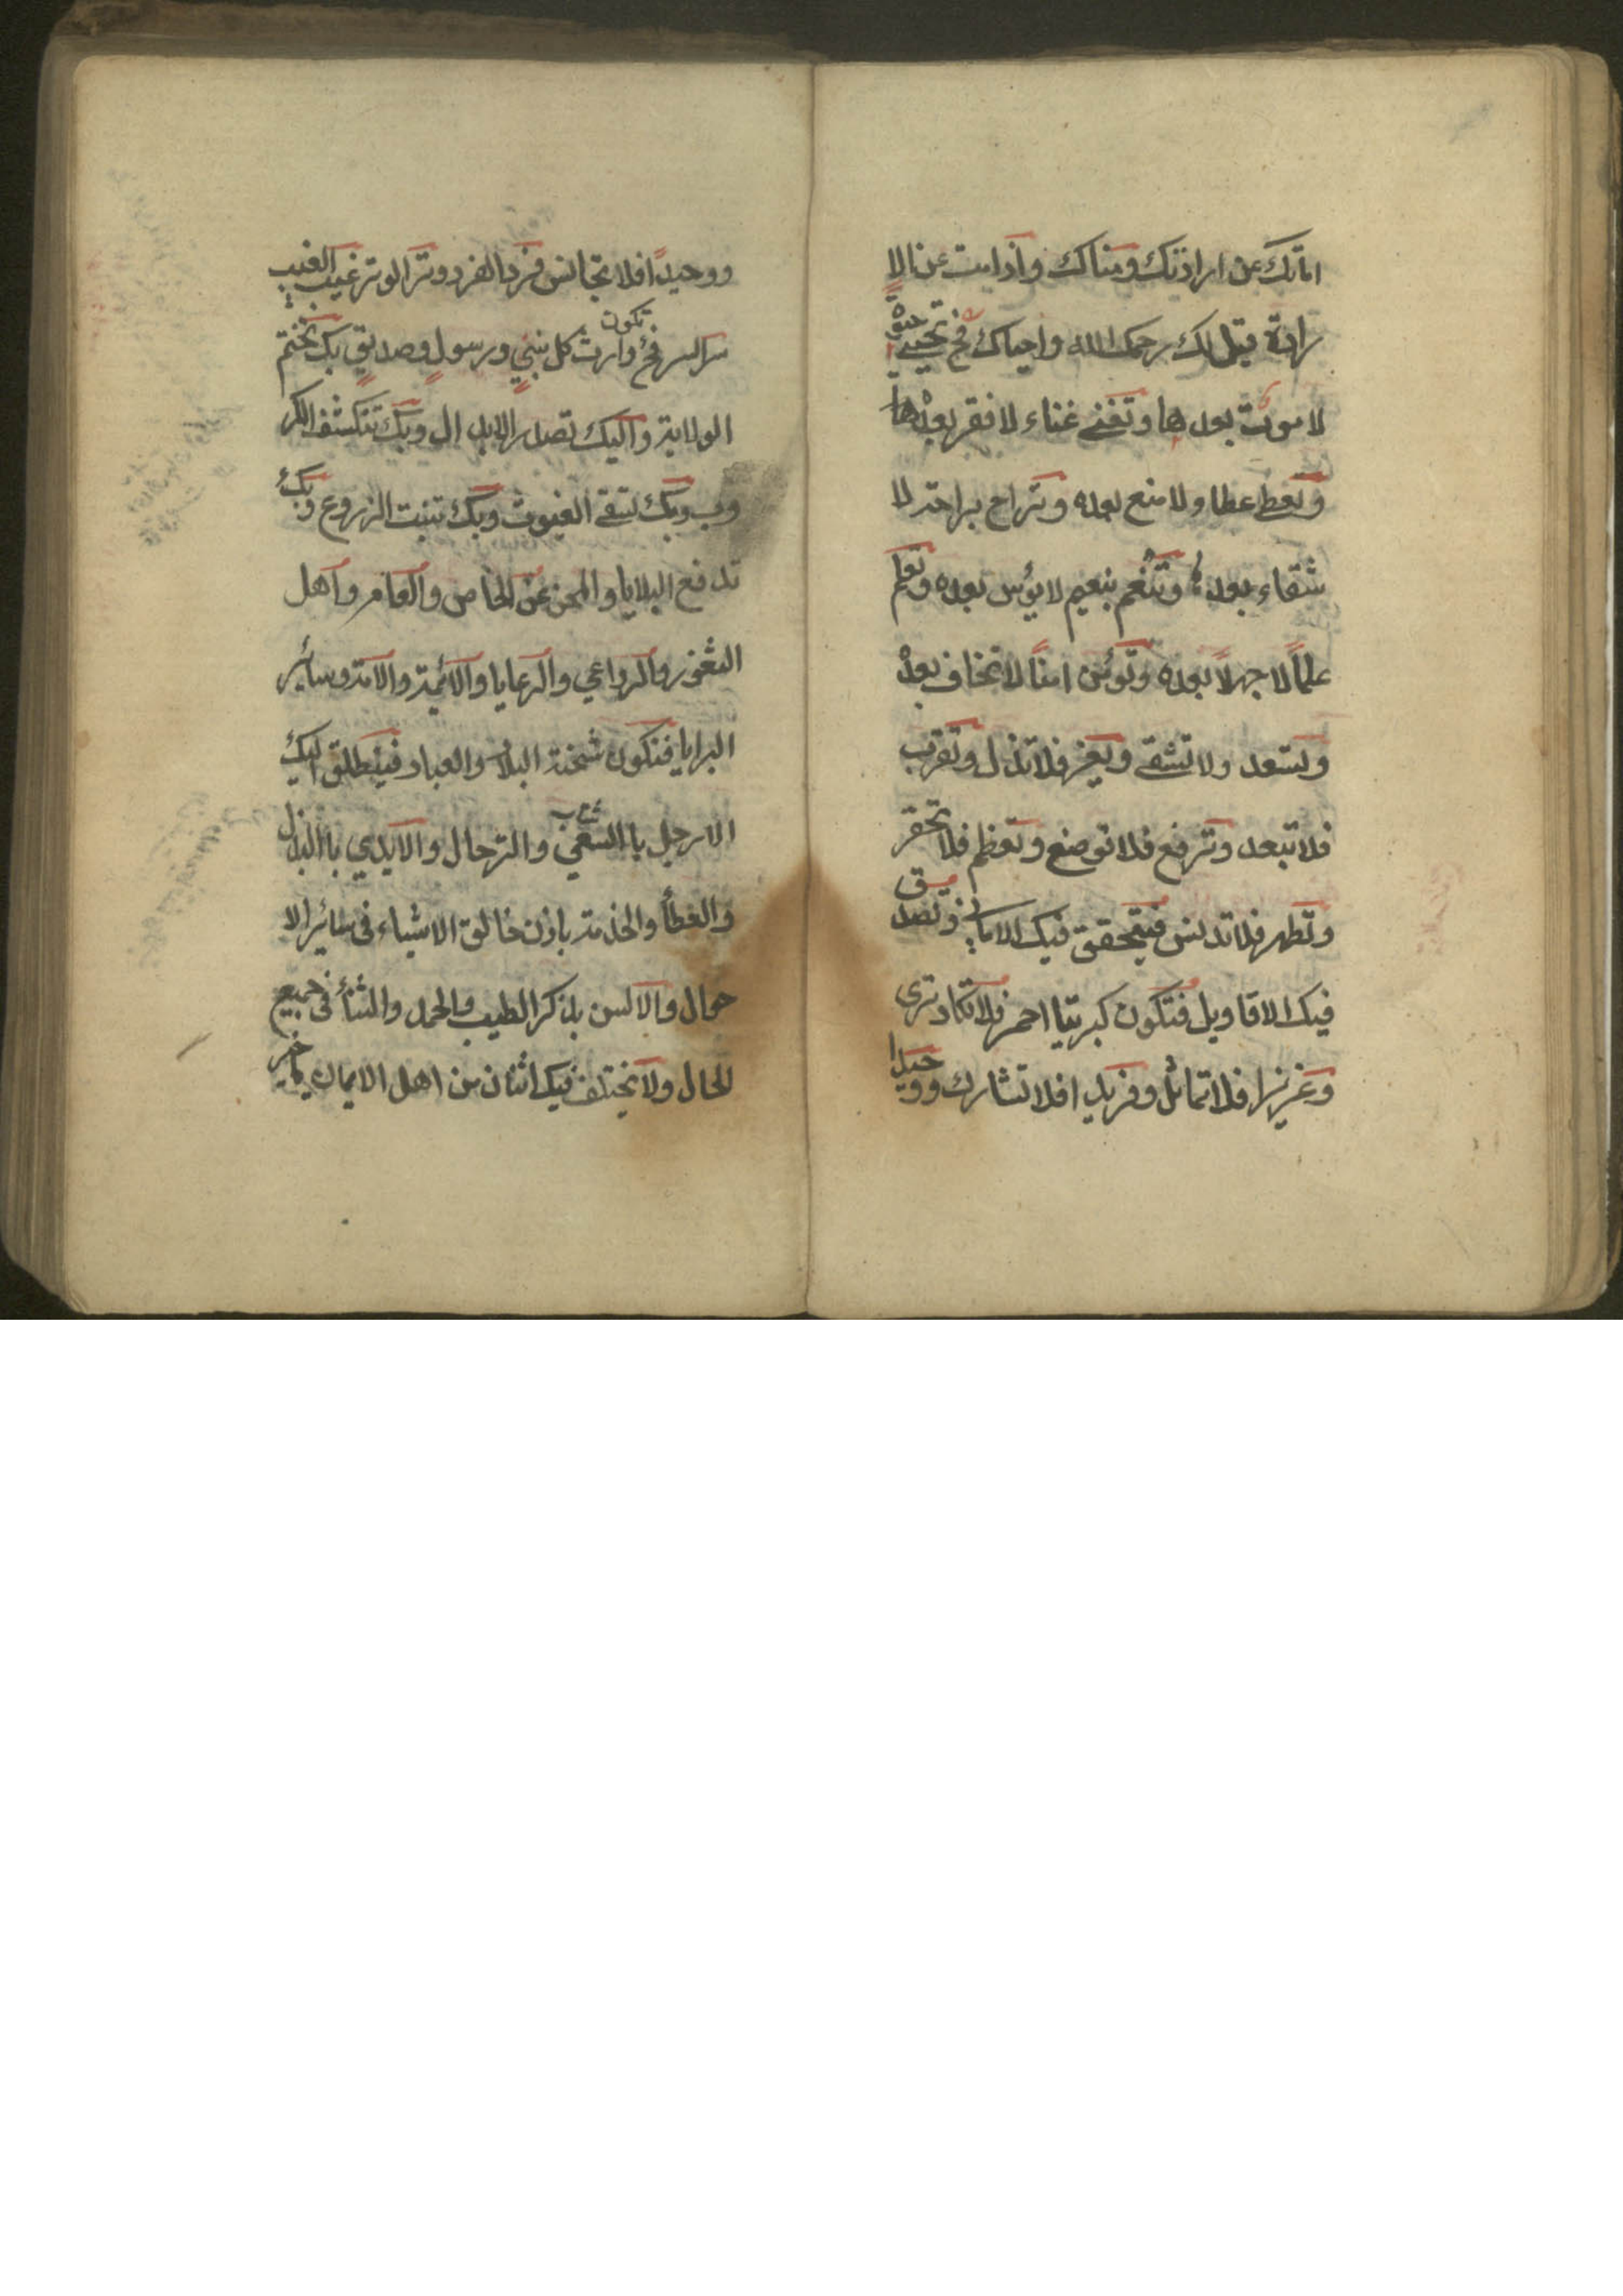 اماتك عن ارادتك ومناك واذا مت عن الا
رادة قيل لك رحمك الله واحياك فح تحيى حيوة
لا موت بعدها وتغنى غناء لا فقر بعدها
وتعطى عطا ولا منع بعده وتراح براحة لا
شقاء بعده وتنعم بنعيم لا بؤس بعده وتعلم
علمًا لا جهلًا بعده وتؤمن امنًا لا تخاف بعده
وتسعد ولا تشقى وتعز فلا تذل وتقرب
فلا تبعد وترفع فلا توضع وتعظم فلا تحقر
وتطهر فلا تدنس فيتحقق فيك الاماني وتصدق
فيك الاقاويل فتكون كبريتا احمر فلا تكاد ترى
وعزيزا فلا تماثل وفريدا فلا تشارك ووحيدا
ووحيدًا فلا تجانس فرد الفرد وتر الوتر غيب الغيب
سر السر فح تكون وارث كل نبي ورسول وصديق بك تختم
الولاية واليك تصدر الابدال وبك تنكشف الكر
وب وبك تسقى الغيوث وبك تنبت الزروع وبك
تدفع البلايا والمحن عن الخاص والعام واهل
الثغور والراعي والرعايا والائمة والامة وسائر
البرايا فتكون شحنة البلاد والعباد فينطلق اليك
الارجل باالسعي والترحال والايدي باالبذل
والعطأ والخدمة باذن خالق الاشياء فى سائر الا
حوال والالسن بذكر الطيب والحمد والثنأ فى جميع
الحال ولا يختلف فيك اثنان من اهل الايمان يا خير